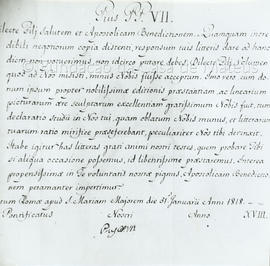 Pius P.P. VII.
Dilecte Fili Salutem et Apostolicam Benedictionem. Quamquam incre
dibili negotiorum copia distenti, responsum tuis litteris dare ad hanc
diem non potuerimus, non idcirco putare debes, Dilecte Fili, Volumen
quod ad Nos misisti, minus Nobis fuisse acceptum. Imo vero cum do-
num ipsum propter nobilissimæ editionis præstantiam, ac linearium
picturarum ære sculptarum excellentiam gratissimum Nobis fuit, tum
declaratio studii in Nos tui, quam oblatum Nobis munus, et litterarum
tuarum ratio mirifice præseferebant, peculiariter Nos tibi devinxit.
Habe igitur has litteras grati animi nostri testes, quem probare Tibi
si aliqua occasione possemus, id libentissime præstaremus. Interea
propensissimæ in Te voluntatis nostræ pignus, Apostolicam Benedictio-
nem peramanter impertimur.
Datum Romæ apud S. Mariam Majorem die 31 Januarii Anni 1818.
Pontificatus Nostri Anno XVIII.